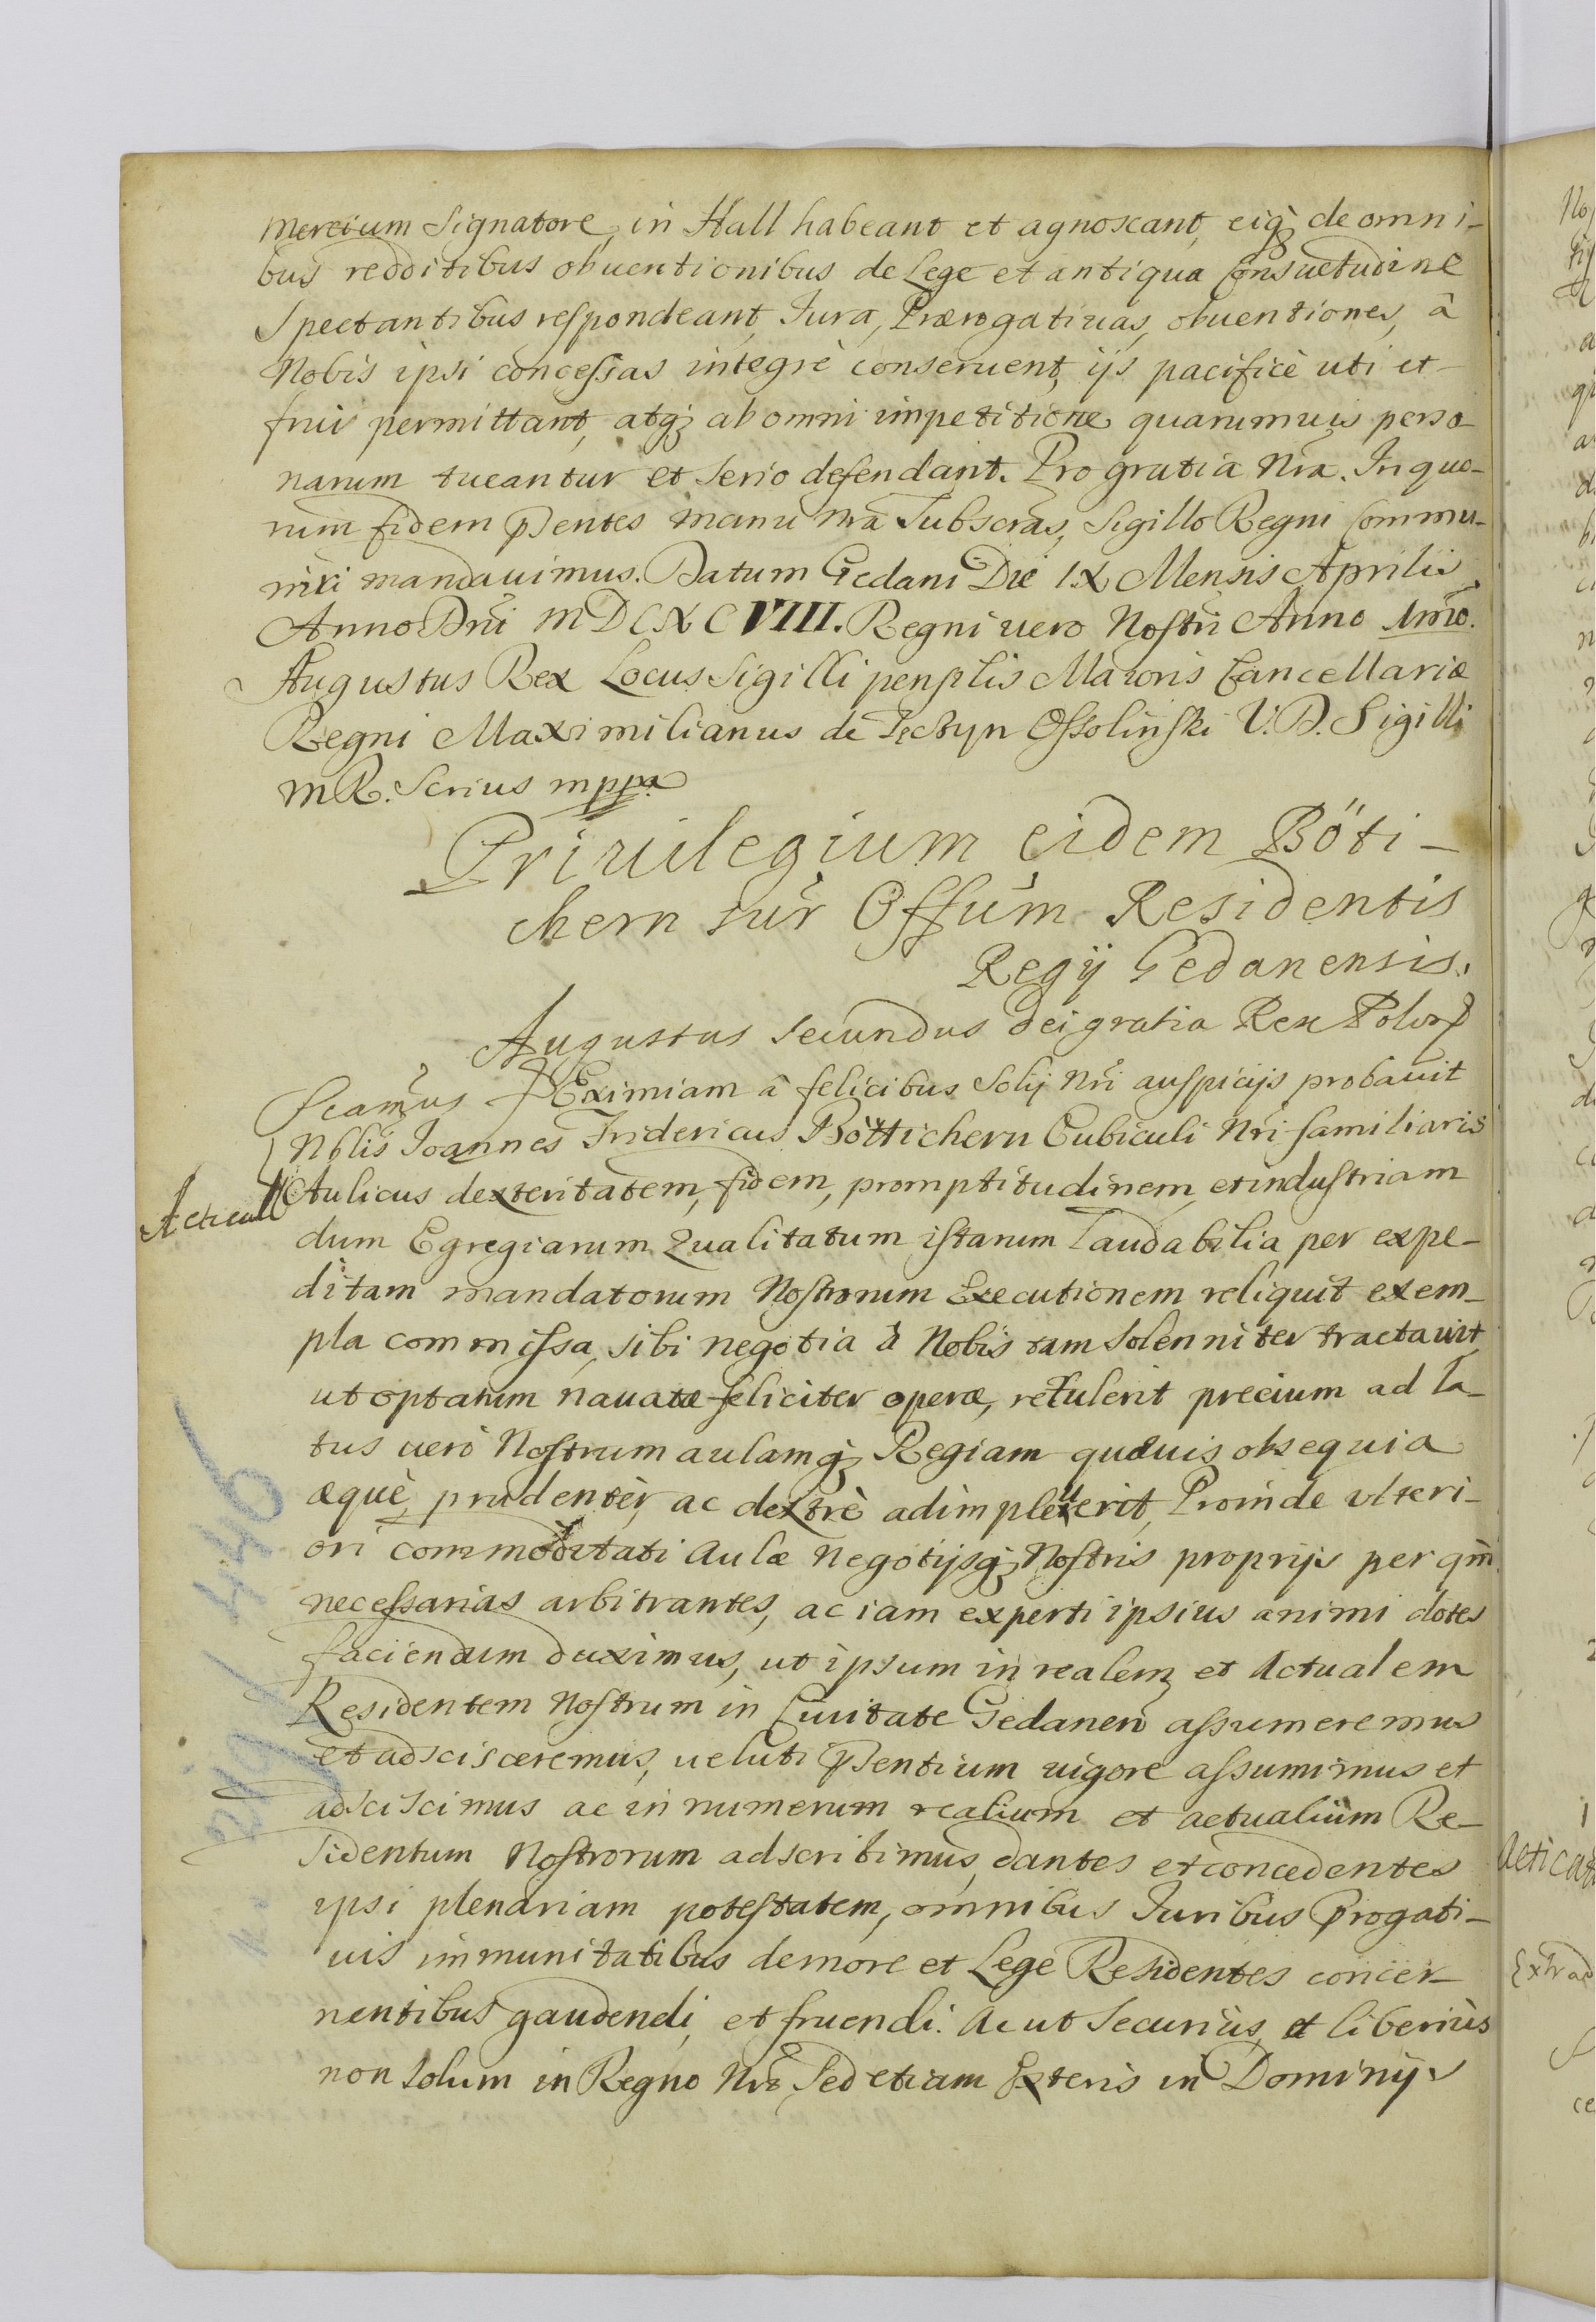 mercium Signatore, in Hall habeant et agnoscant, eiq; de omni-
bus redditibus obuentionibus de Lege et antiqua Consuetudine
Spectantibus respondeant, Iura, Prærogatiuas, obuentiones, à
Nobis ipsi concessas integrè conseruent, ijs pacificè uti et
frui permittant, atq; ab omni impetitione quarumuis perso-
narum tueantur et serio defendant. Pro gratia Nra. In quo-
rum fidem pñtes manu Nra Subscras, Sigillo Regni Commu-
niri mandauimus. Datum Gedani Die IX Mensis Aprilis
Anno Dni MDCXCVIII. Regni uero Nostri Anno 1mo.
Augustus Rex Locus Sigilli pensilis Maioris Cancellariæ
Regni Maximilianus de Tęczyn Ossolinski V. D. Sigilli
MR. Scrius mppa
Priuilegium eidem Böti-
chern sur Offum Residentis
Regij Gedanensis.
Augustus Secundus Dei gratia Rex Polor
Eximiam à felicibus Solij Nri auspicijs probauit
Nblis Joannes Fridericus Böttichern Cubiculi Nri familiaris
Aulicus dexteritatem, fidem, promptitudinem, et industriam
dum Egregiarum Qualitatum istarum Laudabilia per expe-
ditam mandatorum Nostrorum Executionem reliquit exem-
pla commissa, sibi negotia à Nobis tam Solenniter tractauit,
ut optatum nauatæ feliciter operæ, retulerit precium ad La-
tus uerò Nostrum aulamq; Regiam quæuis obsequia
æquè, prudentèr, ac dextrè adimpleuerit, Proinde ulteri-
ori commoditati Aulæ Negotijsq; Nostris proprijs per qm
necessarias arbitrantes, ac iam experti ipsius animi dotes
faciendum duximus, ut ipsum in realem et Actualem
Residentem Nostrum in Ciuitate Gedanen assumeremus
et adscisceremus, ueluti pñtium uigore assumimus et
adsciscimus ac in numerum realium et actualium Re-
sidentum Nostrorum adscribimus, dantes et concedentes
ipsi plenariam potestatem, omnibus Iuribus Prогati-
uis immunitatibus de more et Lege Residentes concer-
nentibus gaudendi, et fruendi. Ac ut Securiùs, et liberiùs
non solum in Regno Nro Sed etiam Exteris in Dominijs